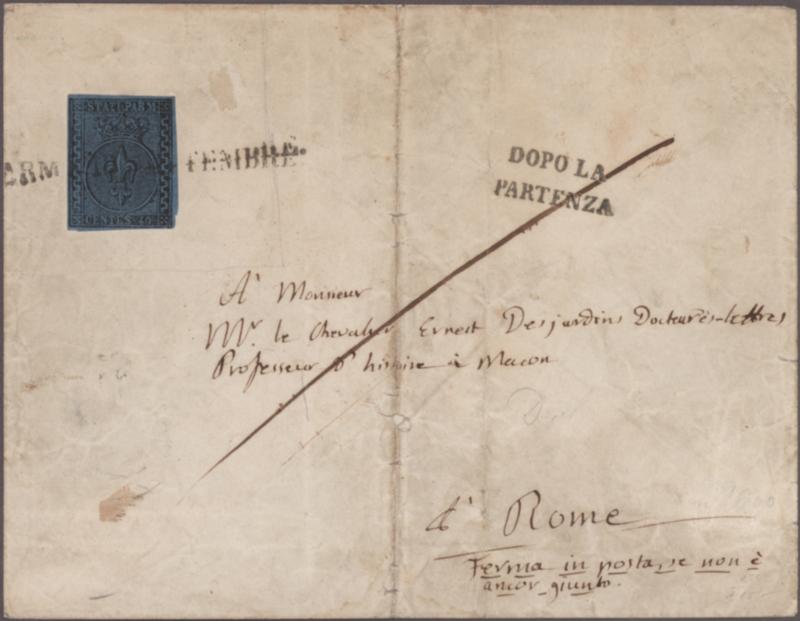 STATI PARM
CENTES 40
ARM
TEMBRE.
DOPO LA
PARTENZA
A' Monsieur
Mr. le Chevalier Ernest Desjardins Docteur ès-lettres
Professeur d'histoire à Macon
à Rome
Ferma in posta, se non è
ancor giunto.